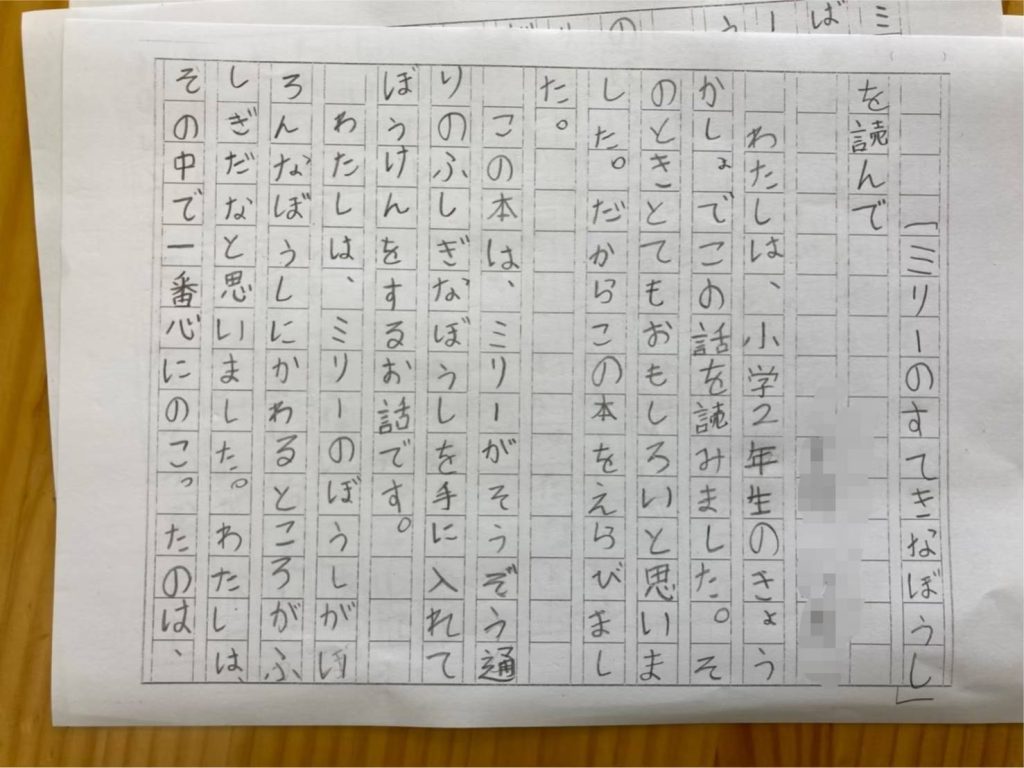 「ミリーのすてきなぼうし」
を読んで
わたしは、小学2年生のきょう
かしょでこの話を読みました。そ
のときとてもおもしろいと思いま
した。だからこの本をえらびまし
た。
この本は、ミリーがそうぞう通
りのふしぎなぼうしを手に入れて
ぼうけんをするお話です。
わたしは、ミリーのぼうしがい
ろんなぼうしにかわるところがふ
しぎだなと思いました。わたしは、
その中で一番心にのこったのは、